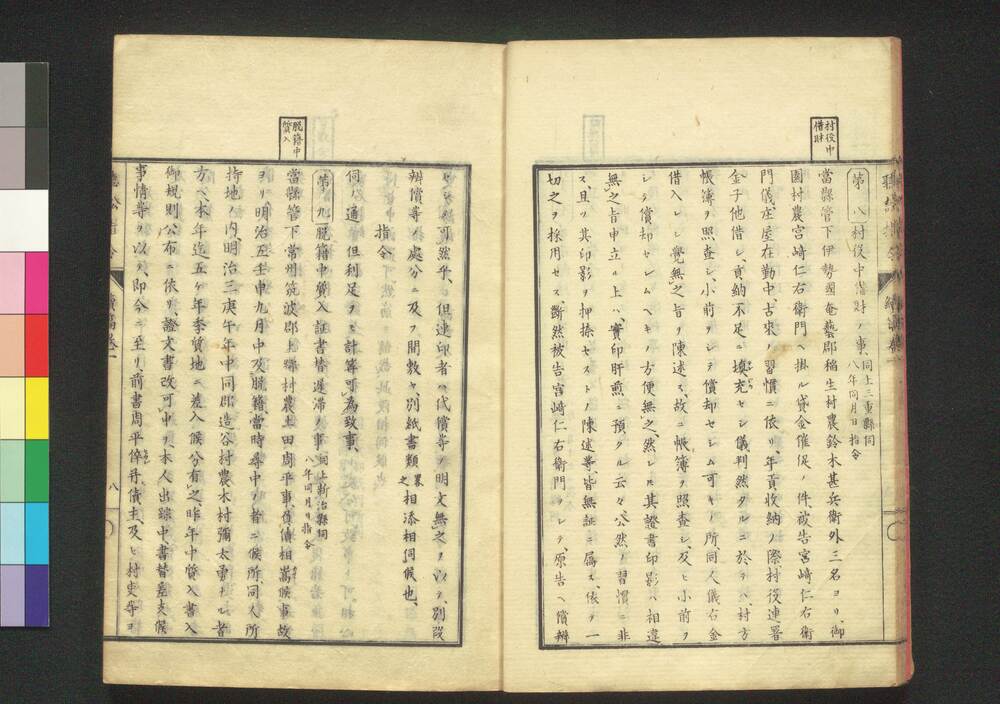 村役中
借財
第八 村役中借財ノ事 同上三重縣伺
八年同月日指令
當縣管下伊勢國奄藝郡稲生村農鈴木甚兵衛外三名ヨリ、御
園村農宮﨑仁右衛門ヘ掛ル貸金催促ノ件、被告宮﨑仁右衛
門儀、庄屋在勤中、古來ノ習慣ニ依リ、年貢收納ノ際村役連署
金子他借シ、貢納不足ニ填充セシ儀判然タルニ於テハ、村方
帳簿ヲ照査シ、小前ヲシテ償却セシム可キノ所、同人儀右金
借入レシ覺無之旨ヲ陳述ス、故ニ帳簿ヲ照査シ、及ヒ小前ヲ
シテ償却セシムヘキノ方便無之、然レ𪜈其證書印影ハ相違
無之旨申立ル上ハ、實印肝煎ニ預クル云々、公然ノ習慣ニ非
ス、且ツ其印影ヲ押捺セストノ陳述等、皆無証ニ属ス、依テ一
切之ヲ採用セス、斷然被告宮﨑仁右衛門ヲシテ、原告ヘ償辨
可然乎、但連印者ハ代償等ノ明文無之ヲ以テ、別段
辨償等ノ處分ニ及ヲ間敷ヤ、別紙書類相添相伺候也、
指令
伺ノ通、但利足ヲモ計算可為致事、
脱籍中
質入
第九 脱籍中質入証書書替遅滞ノ事 同上新治縣伺
八年同月日指令
當縣管下常州筑波郡上郷村農土田周平事、負債相嵩候事故
ヨリ、明治五壬申九月中及脱籍、當時尋中ノ者ニ候所、同人所
持地ノ内明治三庚午年中同郡造谷村農木村彌太勇ナル者
方ヘ、本年迄五ヶ年季質地ニ差入候分有之、昨年中質入書入
御規則公布ニ依リ、證文書改可申ヲ、本人出奔中書替差支候
事情等ヲ以テ、即今ニ至リ、前書周平倅丹債主及ヒ村吏等ヨ
八